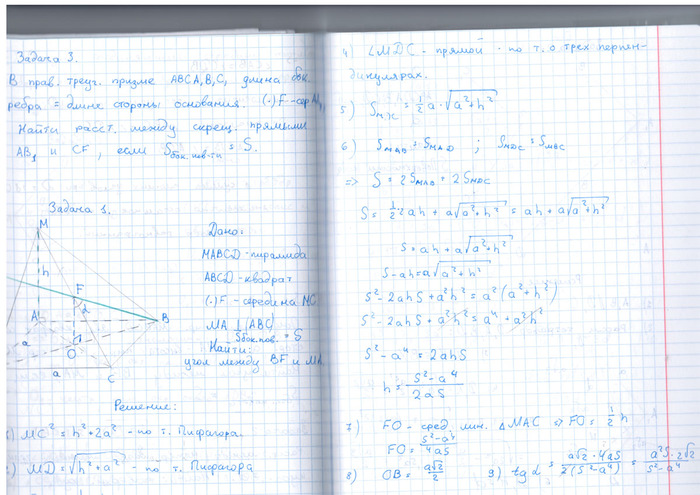 Задача 3.
В прав. треуг. призме ABCA₁B₁C₁ длина бок.
ребра = длине стороны основания. (·) F - сер AA₁
Найти расст. между скрещ. прямыми
AB₁ и CF, если Sбок.пов-ти = S.
Задача 1.
M
h
F
α
A
B
a
O
a
C
Дано:
MABCD - пирамида
ABCD - квадрат
(·) F - середина MC
MA ⊥ (ABC)
Sбок.пов. = S
Найти:
угол между BF и MA
Решение:
1) MC² = h² + 2a² - по т. Пифагора.
2) MD = √(h² + a²) - по т. Пифагора
4) ∠MDC - прямой - по т. о трех перпен-
дикулярах.
5) = ½ a · √(a² + h²)
6) SMAB = SMAD ; SMDC = SMBC
⇒ S = 2SMAB + 2SMDC
S = ½ 2ah + a√(a² + h²) = ah + a√(a² + h²)
S = ah + a√(a² + h²)
S - ah = a√(a² + h²)
S² - 2ahS + a²h² = a²(a² + h²)
S² - 2ahS + a²h² = a⁴ + a²h²
S² - a⁴ = 2ahS
h = (S² - a⁴)/(2aS)
7) FO - сред. лин. △MAC ⇒ FO = ½ h
FO = (S² - a⁴)/(4aS)
8) OB = a√2/2
9) tg α = (a√2 · 4aS)/(2(S² - a⁴)) = (a²S · 2√2)/(S² - a⁴)